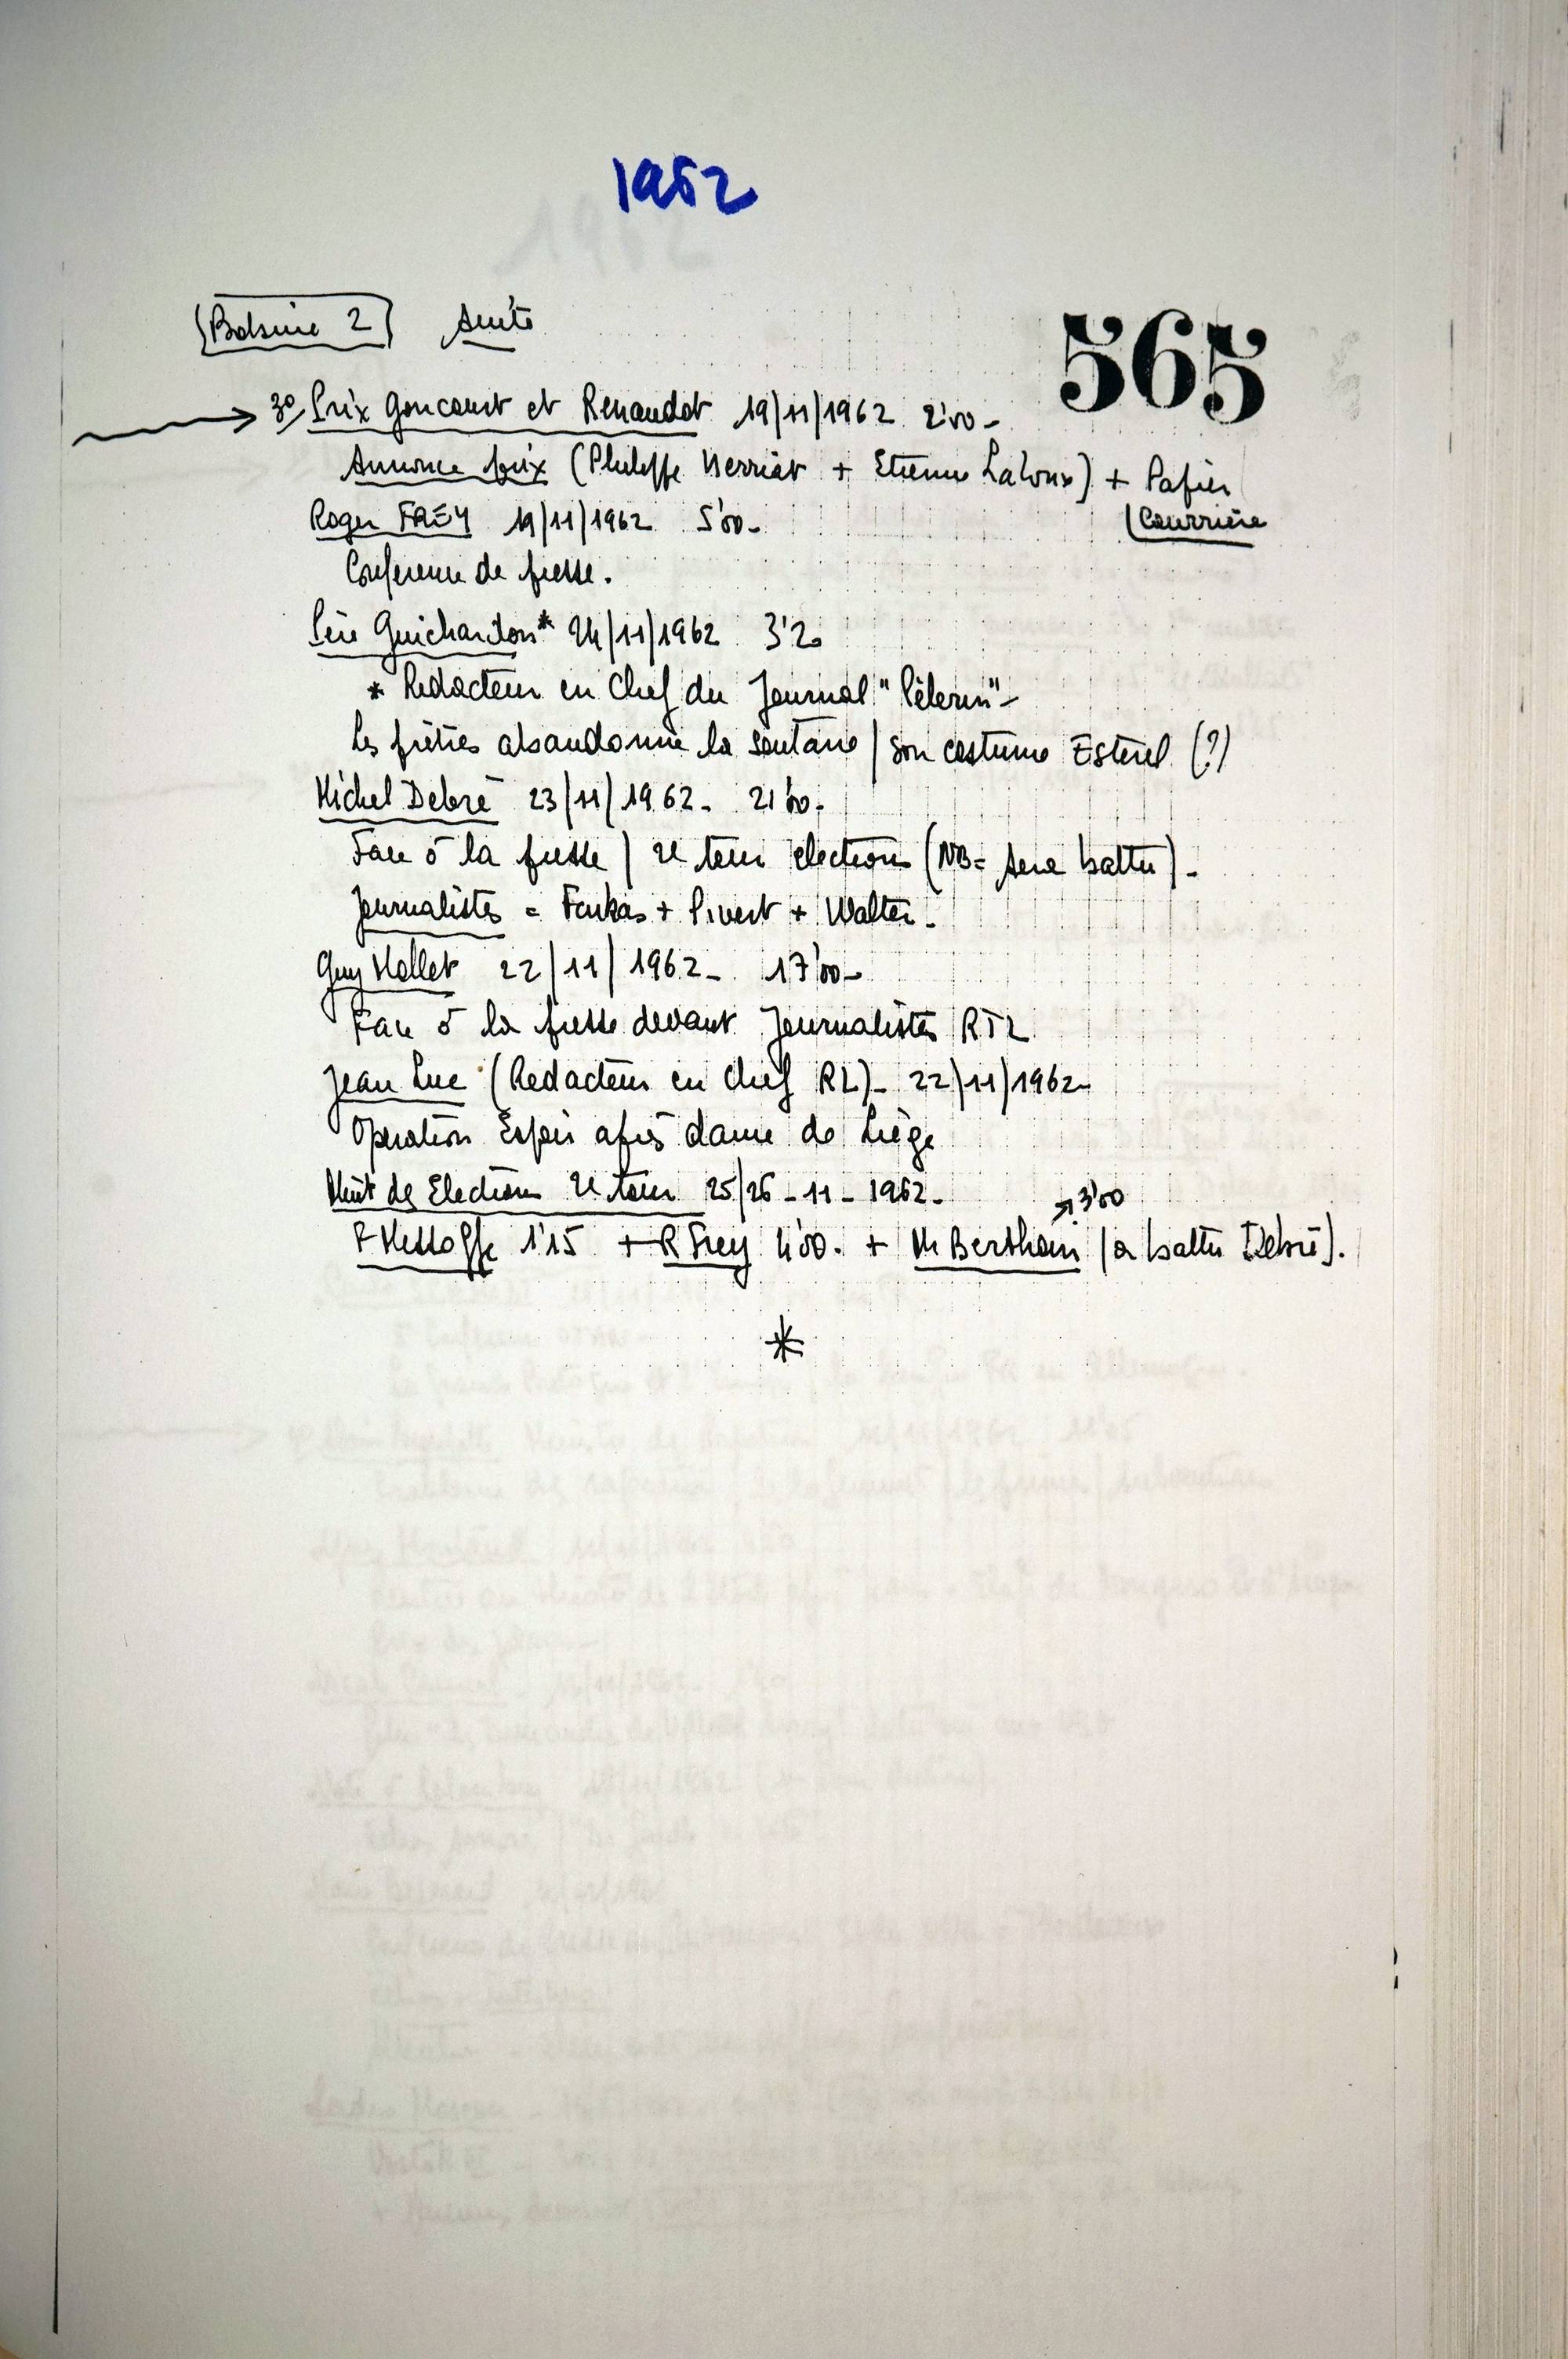 1962
Bobine 2 suite
565
3°/ Prix Goncourt et Renaudot 19/11/1962 2'00-
Annonce prix (Philippe Herriat + Etienne Laloux) + Papier
(Courrière
Roger FREY 19/11/1962 5'00-
Conference de presse.
Père Guichardon* 24/11/1962 3'20
* Redacteur en Chef du Journal "Pèlerin"-
Les prêtres abandonne la soutane / son costume Esterel (?)
Michel Debré 23/11/1962- 21'00-
Face à la presse / 2e tour elections (NB= sera battu)-
Journalistes = Farkas + Pivert + Walter-
Guy Mollet 22/11/1962- 17'00-
Face à la presse devant Journalistes RTL
Jean Luc (Redacteur en Chef RL)- 22/11/1962-
Operation Espoir après dame de Liège
Nuit des Elections 2e tour 25/26-11-1962-
3'00
P Messoffe 1'15 + R Frey 4'00. + M Berthoin (a battu Debré).
*